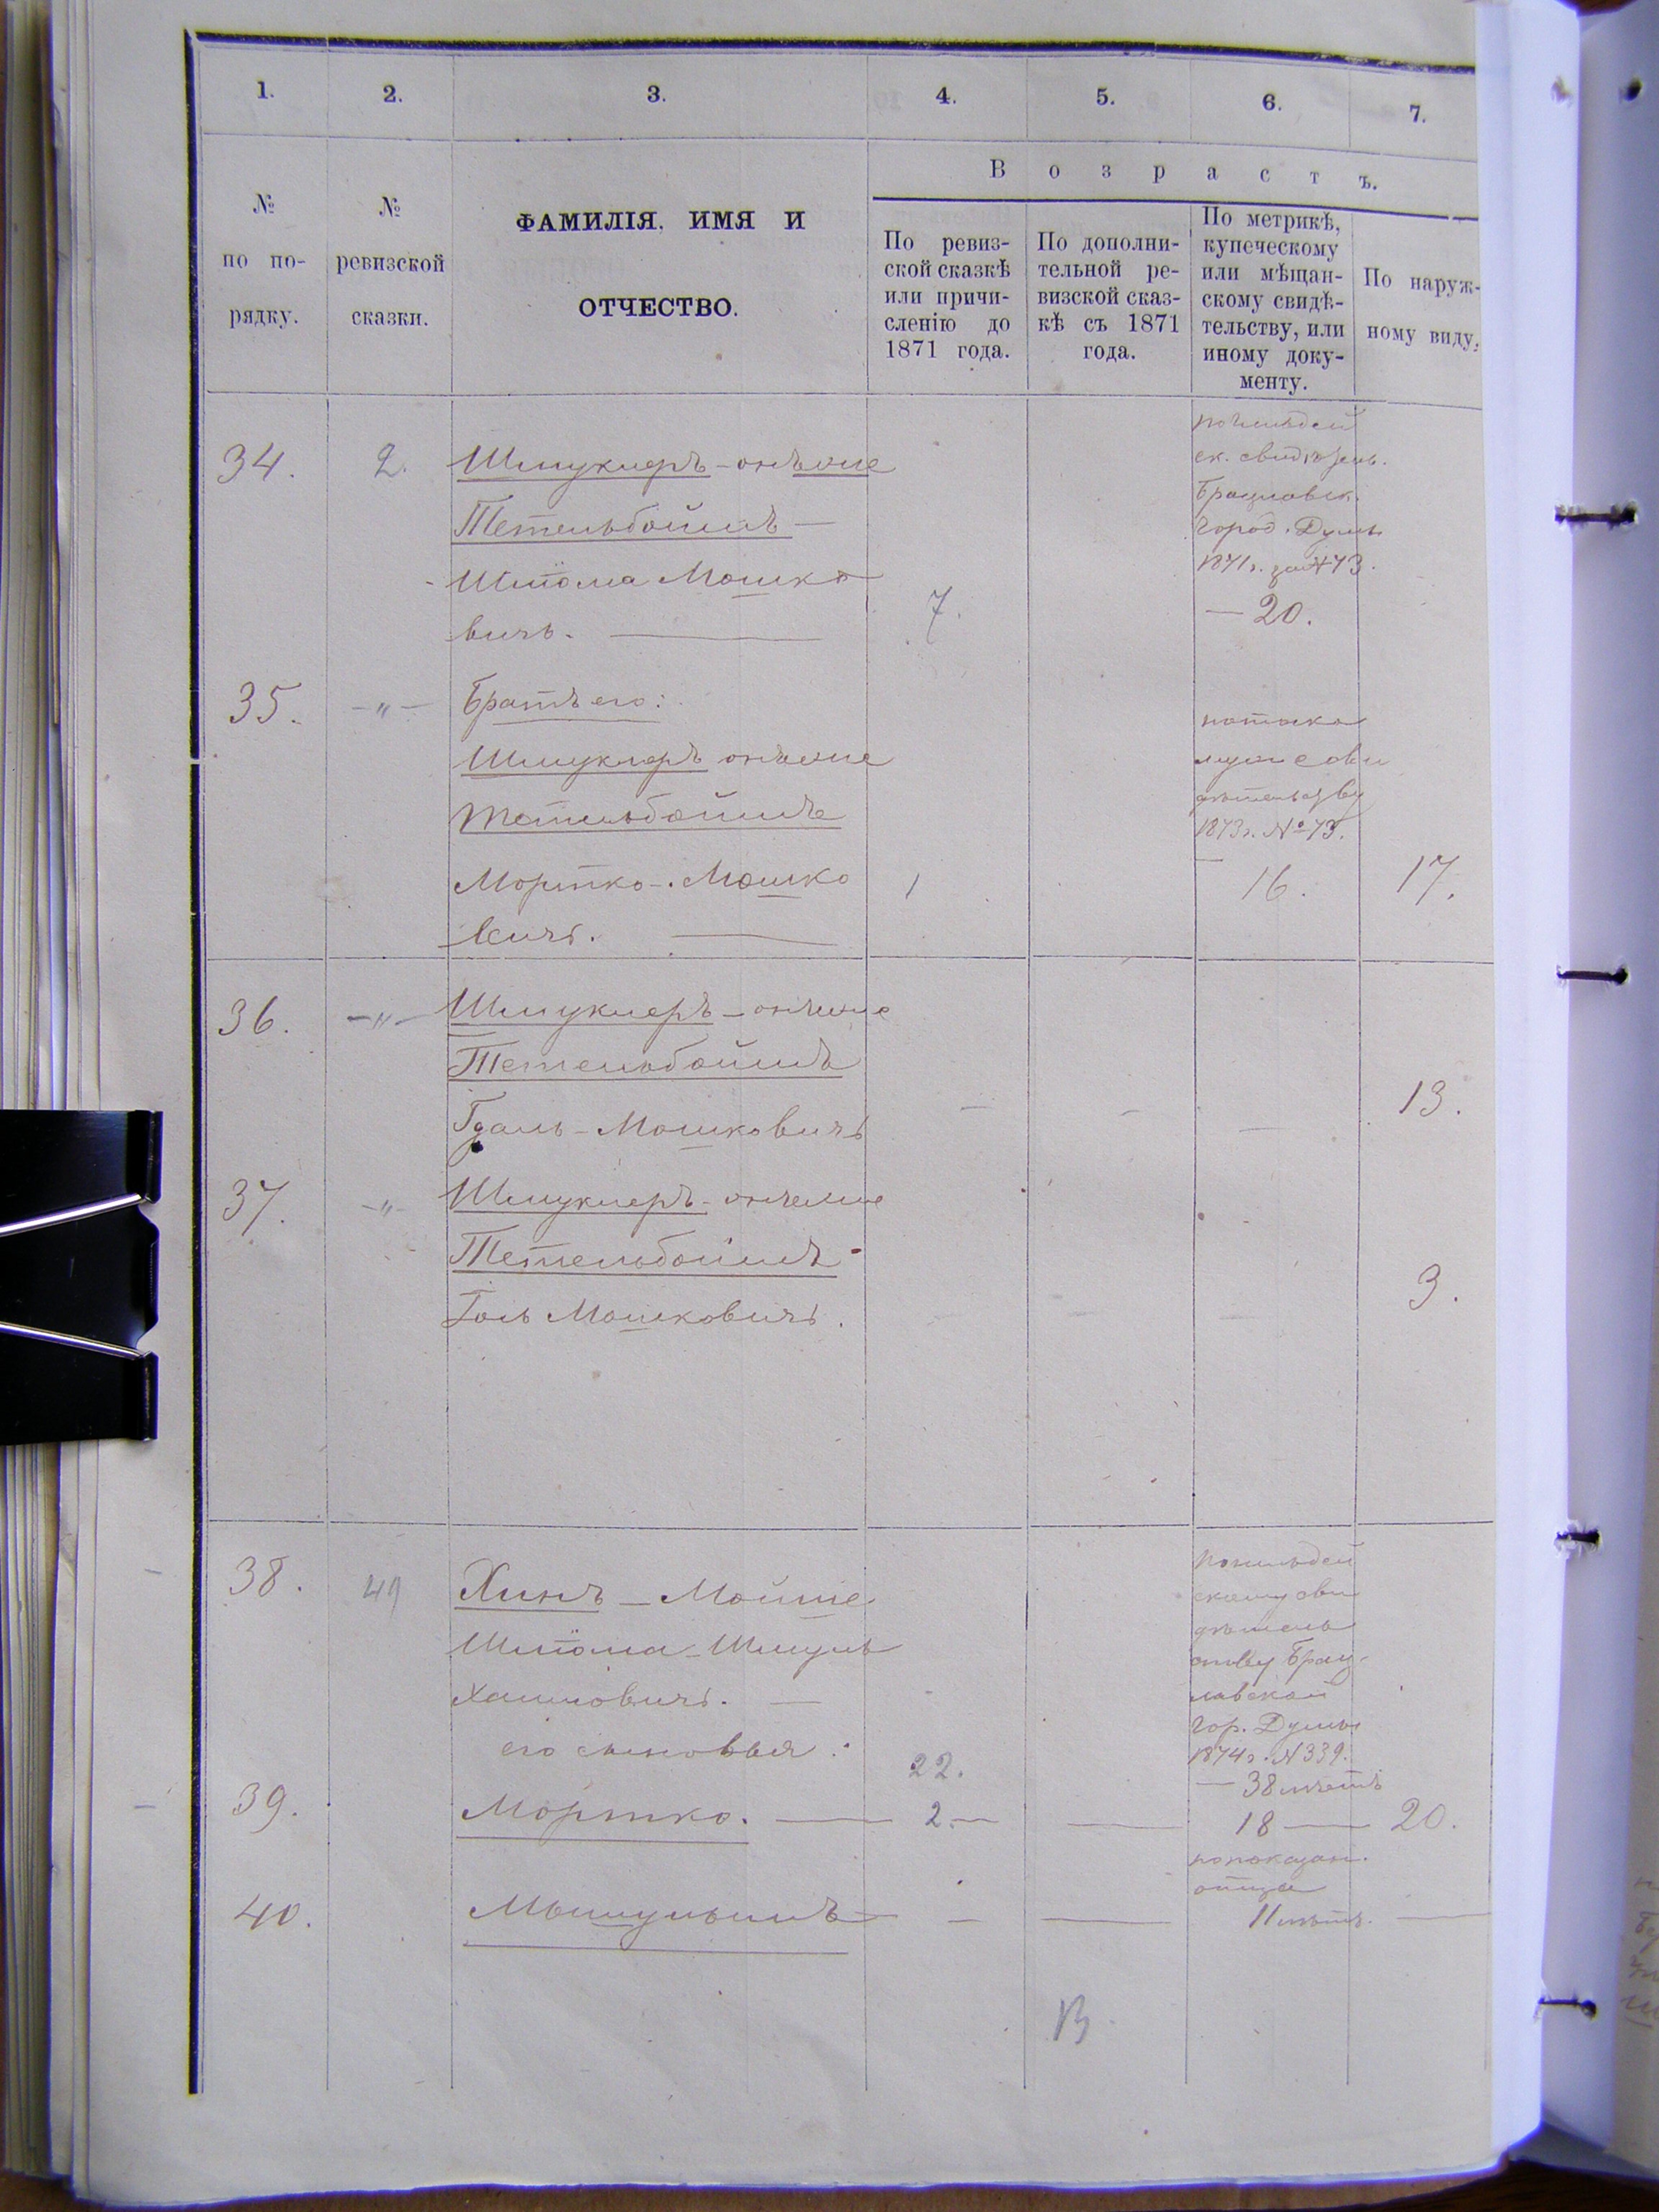 1. 2. 3. 4. 5. 6. 7.
В о з р а с т ъ.
№
по по-
рядку.
№
ревизской
сказки.
ФАМИЛІЯ, ИМЯ И
ОТЧЕСТВО.
По ревиз-
ской сказкѣ
или причи-
сленію до
1871 года.
По дополни-
тельной ре-
визской сказ-
кѣ съ 1871
года.
По метрикѣ,
купеческому
или мѣщан-
скому свидѣ-
тельству, или
иному доку-
менту.
По наруж-
ному виду.
34. 2. Шмуклеръ - онъже
Тетельбоймъ —
Шлiома Мошко
вичъ. — 7.
ск. свидѣтель.
Брацлавск.
Город. Думы
1871г. за № 73.
— 20.
35. -"- Братъ его:
Шмуклеръ онъже
Тетельбоймъ
Мортко - Мошко 1
вичъ. —
по тако
муже сви
дѣтельству
1873г. № 73.
— 16. 17.
36. -"- Шмуклеръ - онъже
Тетельбоймъ
Гдаль - Мошковичъ — — — 13.
37. -"- Шмуклеръ - онъже
Тетельбоймъ -
Мошковичъ. — — 3.
38. 49 Хинъ — Мойше
Шлiома - Шмуль
Хаимовичъ. —
его сыновья: 22.
скому сви
дѣтель
ству Брац-
лавской
Гор. Думы
1874г. № 339.
— 38 лѣтъ
39. Мортко. — 2 — — 18 — 20.
по показан.
отца
40. — — — 11 лѣтъ. —
В